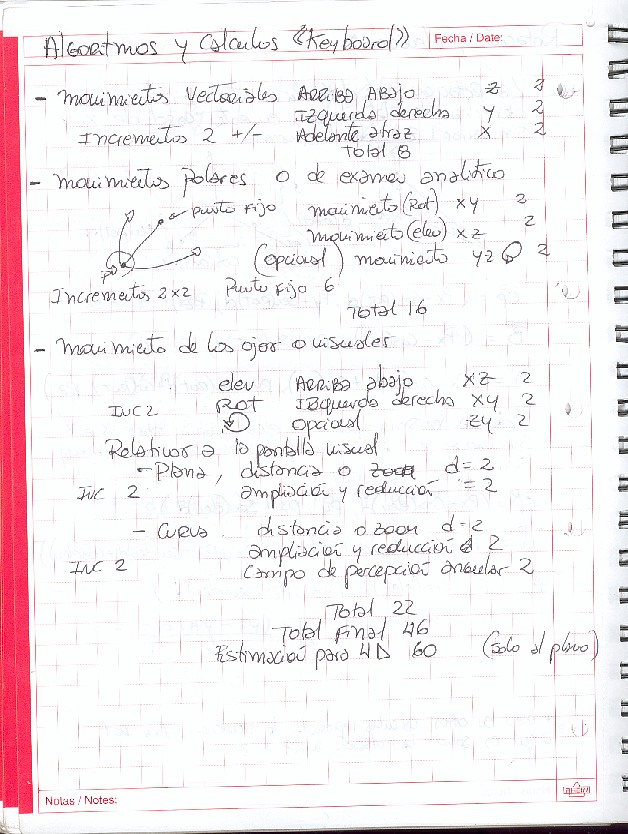 Algoritmos y Calculos «Keyboard»
Fecha / Date:
- Movimientos Vectoriales ARRIBA Abajo Z 2
Izquerda derecha Y 2
Incrementos 2 +/- Adelante atraz X 2
Total 8
- Movimientos Polares o de examen analitico
Punto Fijo movimiento (Rot) XY 2
movimiento (elev) XZ 2
(opcional) movimiento YZ 2
Incrementos 2x2 Punto Fijo 6
Total 16
- Movimiento de los ojos o visuales
elev ARRIBA abajo XZ 2
INC 2 ROT IZquerda derecha XY 2
opcional ZY 2
Relativos a la pantalla visual
- Plana, distancia o zoom d=2
INC 2 ampliación y reducción =2
- Curva distancia o zoom d=2
ampliación y reducción d 2
INC 2 Campo de percepción angular 2
Total 22
Total Final 46
Estimación para 4D 60 (solo al plano)
Notas / Notes: